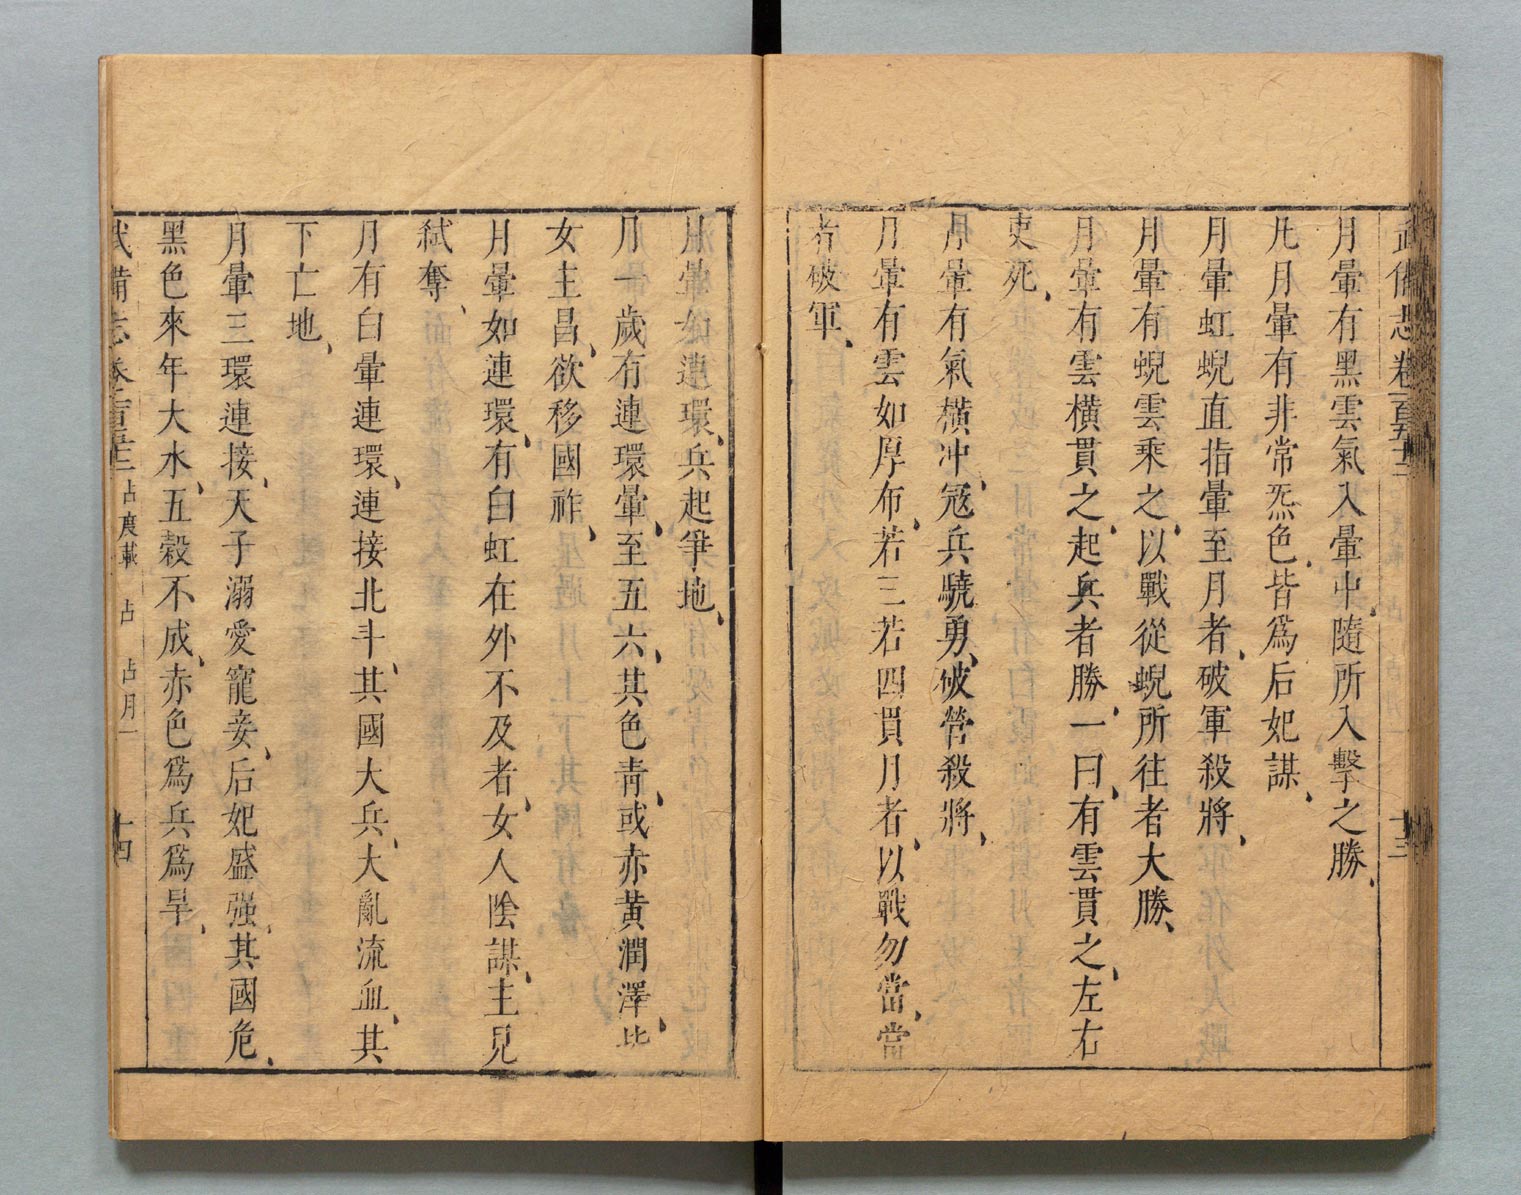 武備志卷一百五十三 十三
月暈有黑雲氣入暈中、隨所入擊之勝、
凡月暈有非常炁色、皆爲后妃謀、
月暈虹蜺直指暈至月者、破軍殺將、
月暈有蜺雲乘之、以戰從蜺所往者大勝、
月暈有雲橫貫之、起兵者勝、一曰、有雲貫之、左右
吏死、
月暈有氣橫冲、寇兵驍勇、破營殺將、
月暈有雲如厚布、若三若四貫月者、以戰勿當、當
者破軍、
月暈連環、兵起爭地、
月一歲有連環暈、至五六、其色靑、或赤黃潤澤、此
女主昌、欲移國祚、
月暈如連環、有白虹在外不及者、女人陰謀、主見
弒奪、
月有白暈連環、連接北斗、其國大兵、大亂流血、其
下亡地、
月暈三環連接、天子溺愛寵妾、后妃盛强、其國危、
黑色來年大水、五穀不成、赤色爲兵爲旱、
武備志卷一百五十三 占度載 占 占月一 十四